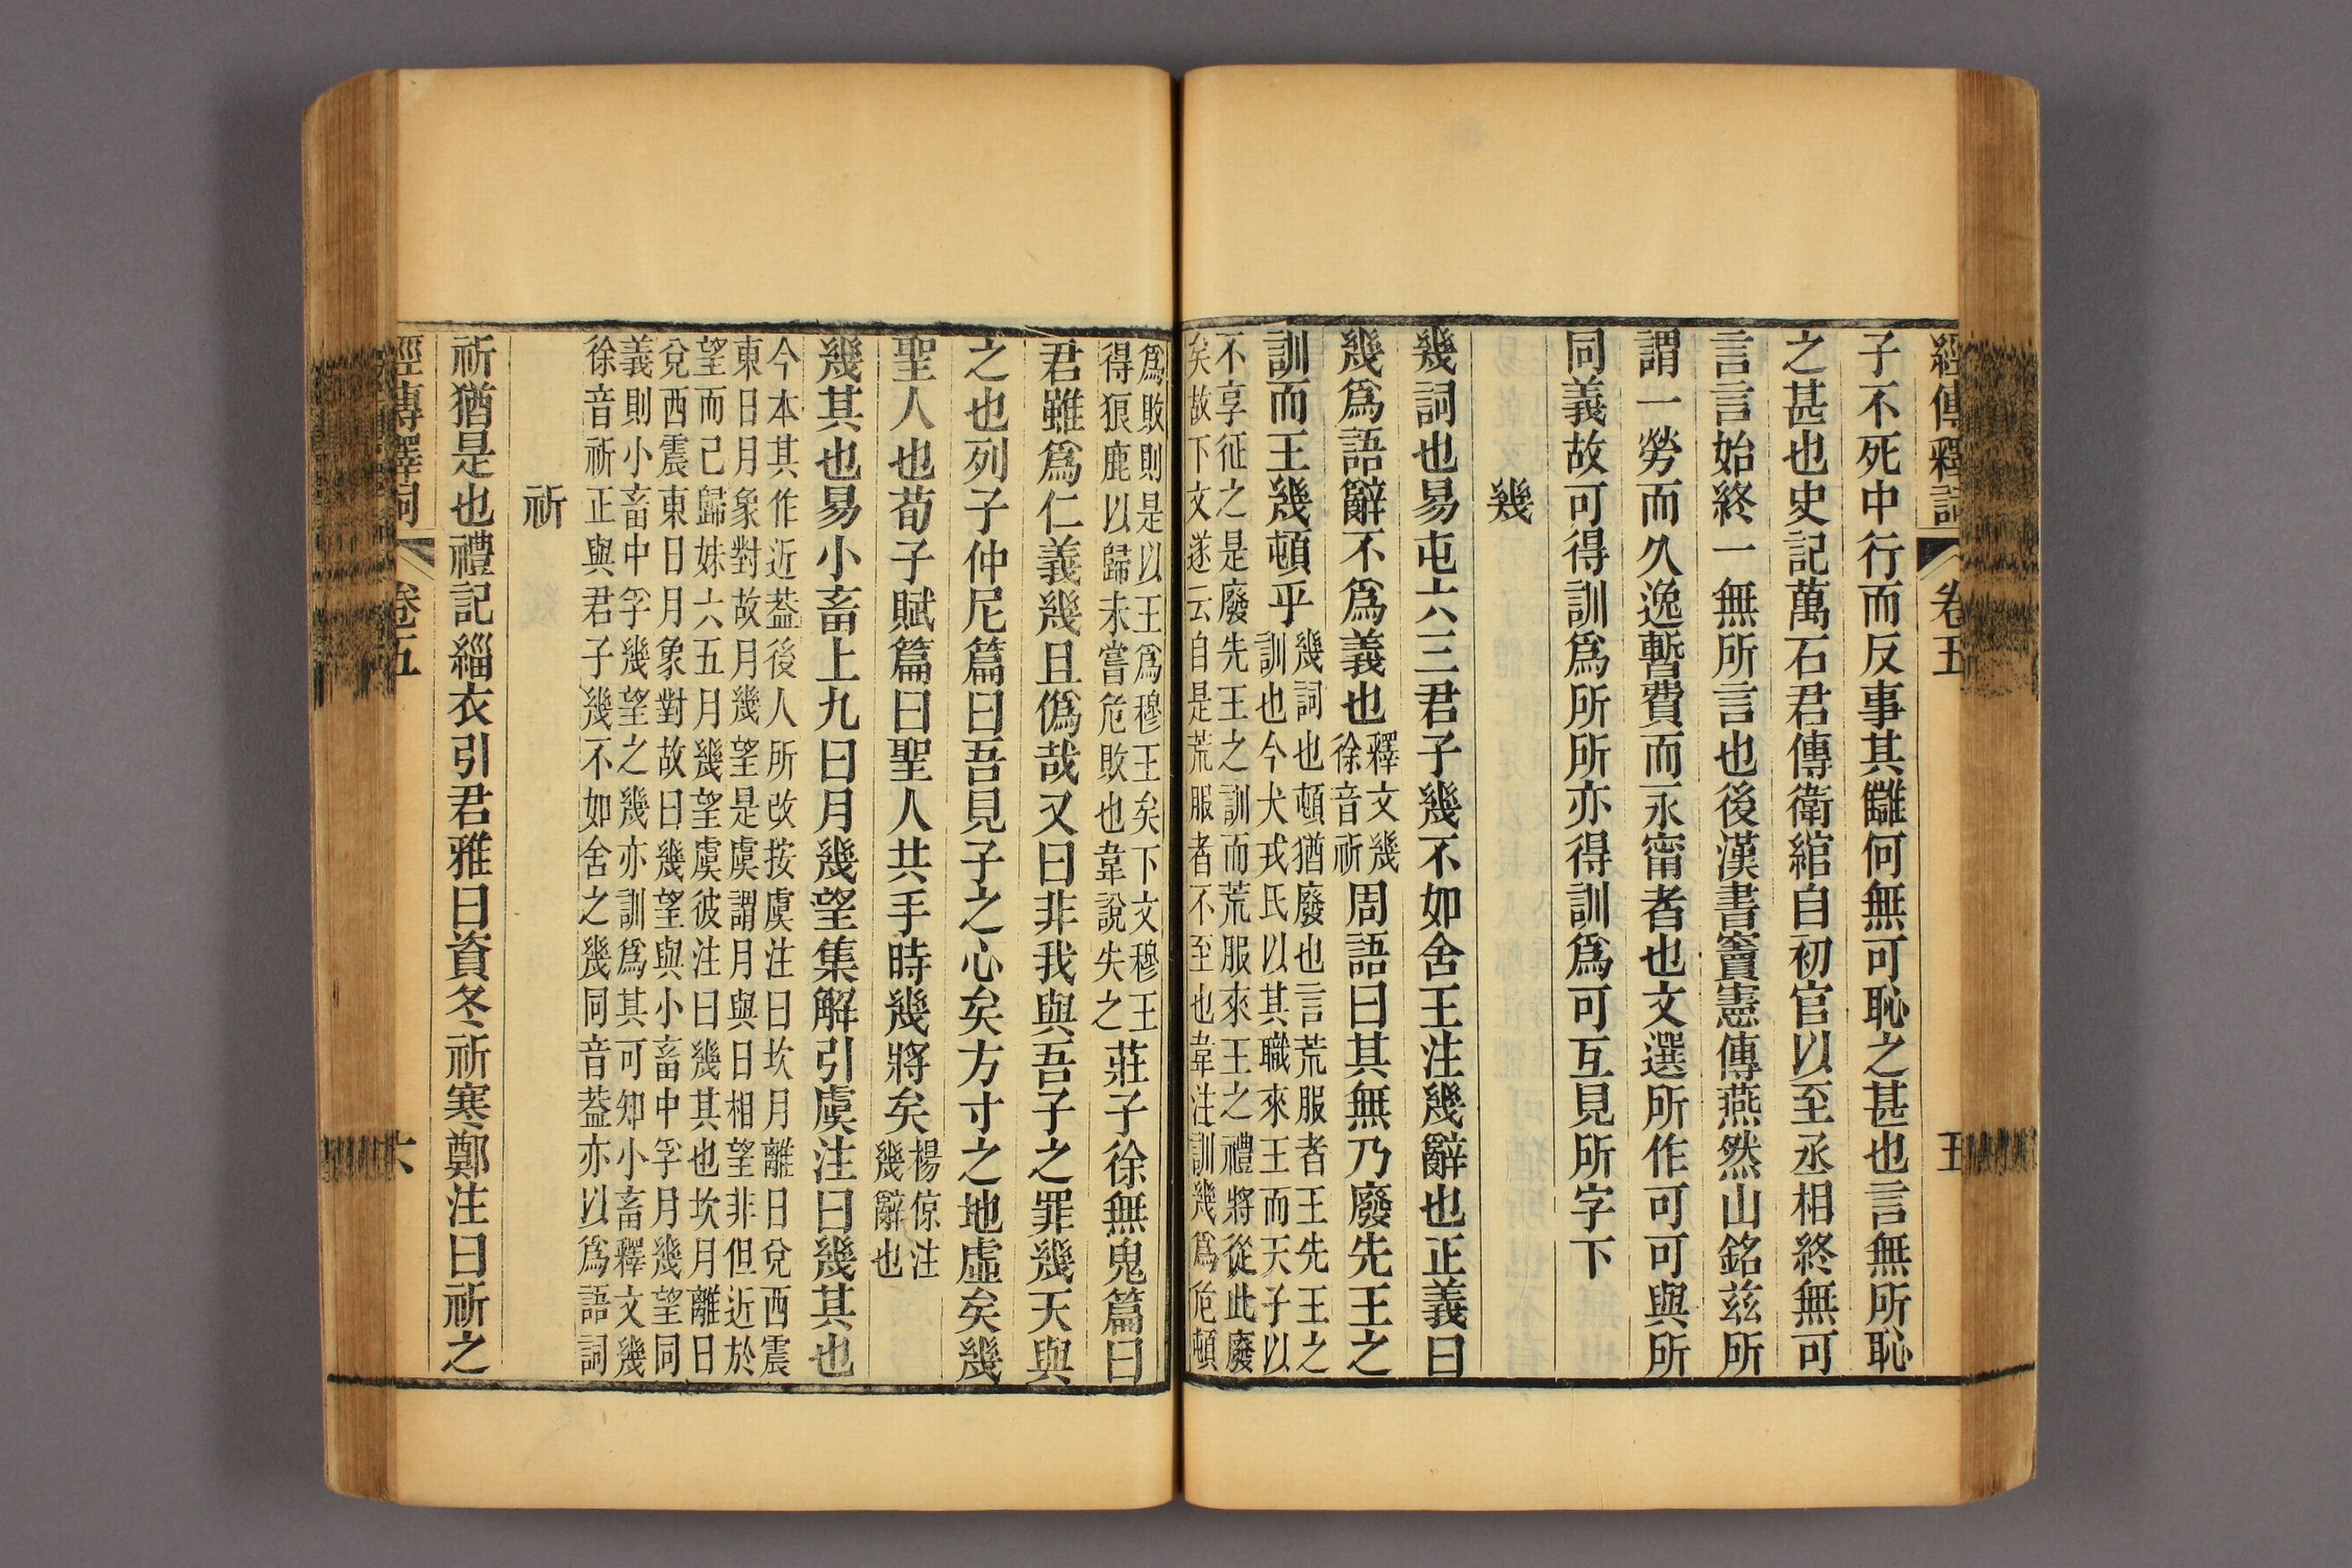 經傳釋詞 卷五 五
子不死中行而反事其讎何無可恥之甚也言無所恥
之甚也史記萬石君傳衛綰自初官以至丞相終無可
言言始終一無所言也後漢書竇憲傳燕然山銘茲所
謂一勞而久逸暫費而永甯者也文選所作可可與所
同義故可得訓爲所所亦得訓爲可互見所字下
幾
幾詞也易屯六三君子幾不如舍王注幾辭也正義曰
幾爲語辭不爲義也釋文幾徐音祈周語曰其無乃廢先王之
訓而王幾頓乎幾詞也頓猶廢也言荒服者王先王之訓也今犬戎氏以其職來王而天子以
不享征之是廢先王之訓而荒服來王之禮將從此廢矣故下文遂云自是荒服者不至也韋注訓幾爲危頓
爲敗則是以王爲穆王矣下文穆王得狼鹿以歸未嘗危敗也韋說失之莊子徐無鬼篇曰
君雖爲仁義幾且僞哉又曰非我與吾子之罪幾天與
之也列子仲尼篇曰吾見子之心矣方寸之地虛矣幾
聖人也荀子賦篇曰聖人共手時幾將矣楊倞注幾辭也
幾其也易小畜上九曰月幾望集解引虞注曰幾其也
今本其作近葢後人所改按虞注曰坎月離日兌西震東日月象對故月幾望是虞謂月與日相望非但近於
望而已歸妹六五月幾望虞彼注曰幾其也坎月離日兌西震東日月象對故曰幾望與小畜中孚月幾望同
義則小畜中孚幾望之幾亦訓爲其可知小畜釋文幾徐音祈正與君子幾不如舍之幾同音葢亦以爲語詞
祈
祈猶是也禮記緇衣引君雅曰資冬祈寒鄭注曰祈之
經傳釋詞 卷五 六